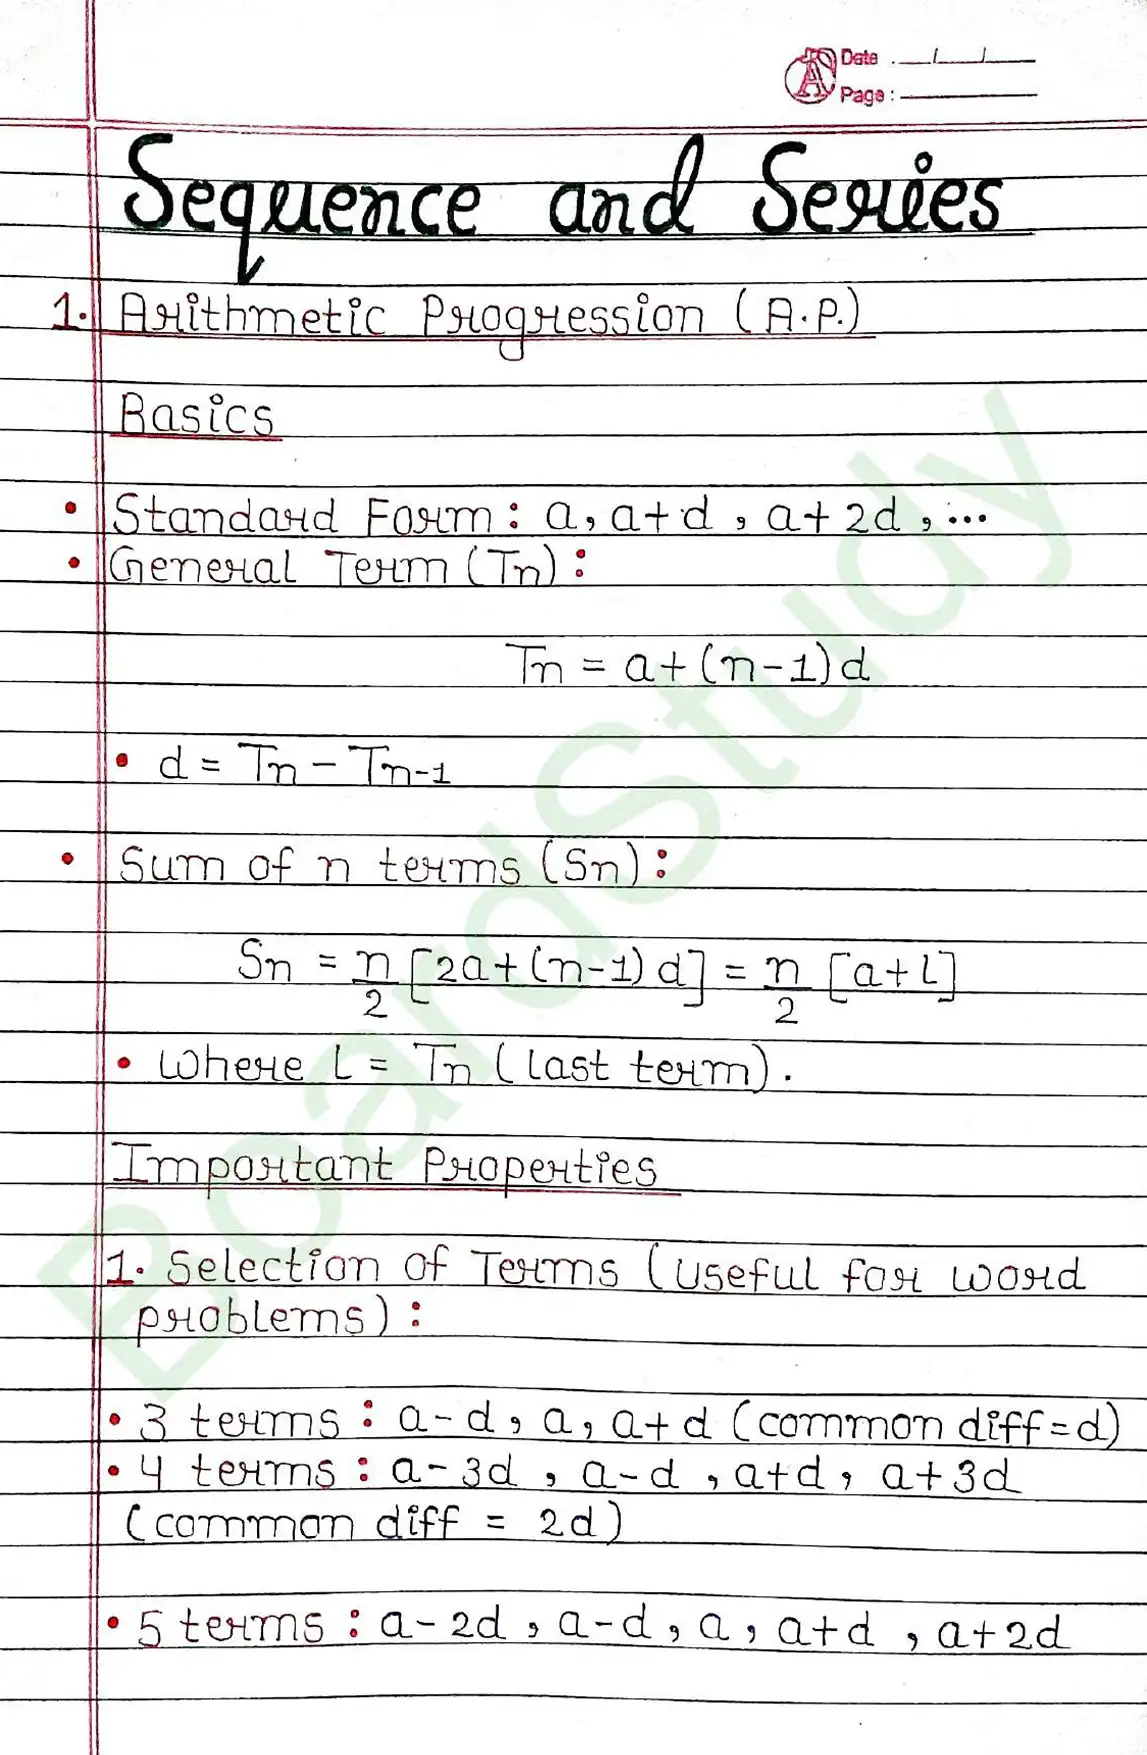 Date : __/__/__
Page :
Sequence and Series
1. Arithmetic Progression (A.P.)
Basics
• Standard Form : a, a+d, a+2d, ...
• General Term (Tn) :
Tn = a+(n-1)d
• d = Tn - Tn-1
• Sum of n terms (Sn) :
Sn = n/2 [2a+(n-1)d] = n/2 [a+l]
• Where l = Tn (last term).
Important Properties
1. Selection of Terms (useful for word
problems) :
• 3 terms : a-d, a, a+d (common diff=d)
• 4 terms : a-3d, a-d, a+d, a+3d
(common diff = 2d)
• 5 terms : a-2d, a-d, a, a+d, a+2d
BoardStudy